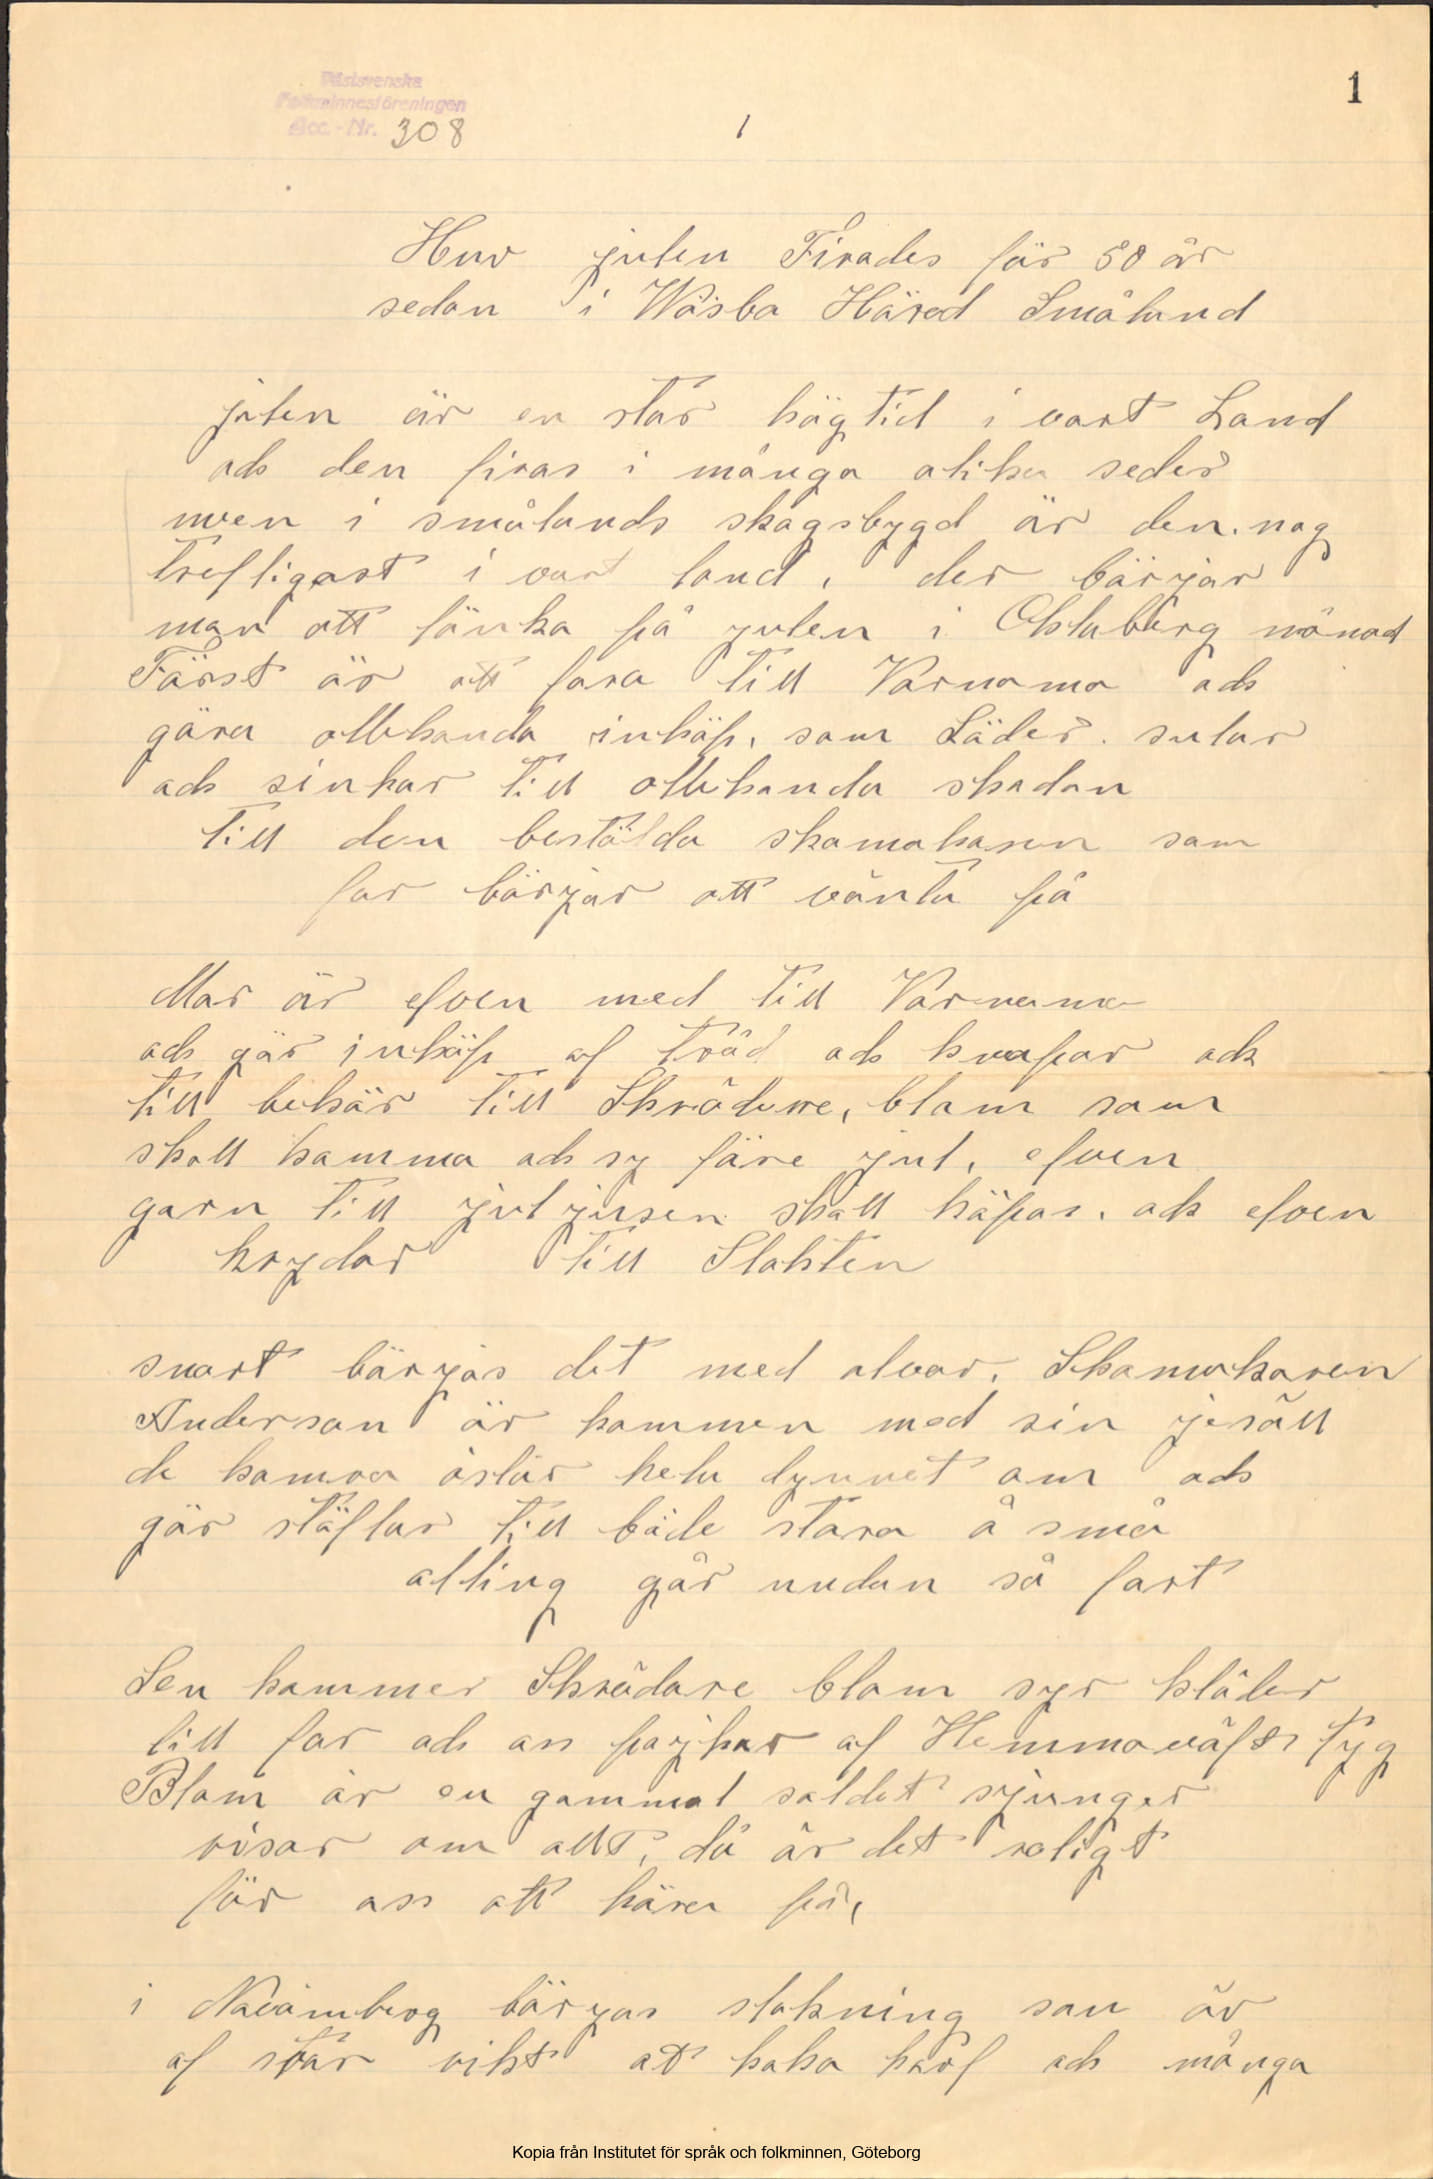 1
Västsvenska
Folkminnesföreningen
Acc.-Nr. 308
1
Hur julen Firades för 50 år
sedan i Wäsbo Härad Småland
julen är en stor högtid i vort Land
och den firas i många olika seder
men i smålands skogsbygd är den nog
trefligast i vort land, der börjar
man att tänka på julen i Oktoberg månad
Först är att fara till Värnamo och
göra allehanda inköp, som Läder. sulor
och sinkar till allehanda skodon
till den bestälda skomakaren som
far börjar att vänta på
Mor är efven med till Värnamo
och gör inköp af tråd och knapar och
till behör till Skrädare, blom som
skall komma och sy före jul, efven
garn till jul jusen skall köpas. och efven
krydor till Slakten
snart börjas det med alvar, Skomakaren
Anderson är kommen med sin jesäll
de hamra öslar hela dynnet om och
gör stöflar till både stora å små
alting går undan så fort
Sen kommer Skrädare blom syr kläder
till far och oss pojkar af Hemmaväft tyg
Blom är en gammal soldat sjunger
visor om allt, då är det roligt
för oss att höra på,
i Novämberg börjas slakning som är
af stor vikt at koka korf och många
Kopia från Institutet för språk och folkminnen, Göteborg